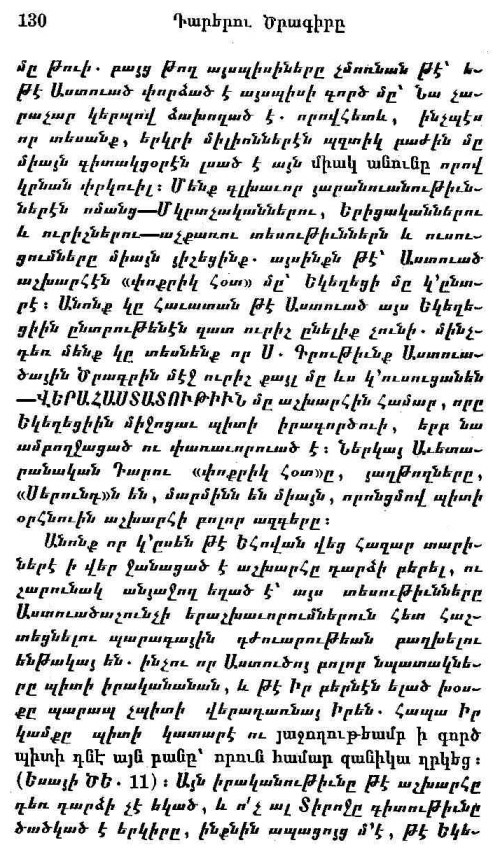 130 Դարերու Ծրագիրը
մը թուի. բայց թող այսպիսիները չմոռնան թէ՝ ե-
թէ Աստուած փորձած է այսպիսի գործ մը՝ Նա չա-
րաչար կերպով ձախողած է. որովհետև, ինչպէս
որ տեսանք, երկրի միլիոններէն պզտիկ բաժին մը
միայն գիտակցօրէն լսած է այն միակ անունը որով
կրնան փրկուիլ: Մենք գլխաւոր յարանուանութիւն-
ներէն ոմանց—Մկրտչականներու, Երիցականներու
և ուրիշներու—աչքառու տեսութիւններն և ուսու-
ցումները միայն յիշեցինք. այսինքն թէ՝ Աստուած
աշխարհէն «փոքրիկ հօտ» մը՝ Եկեղեցի մը կ'ընտ-
րէ: Անոնք կը հաւատան թէ Աստուած այս Եկեղե-
ցիին ընտրութենէն զատ ուրիշ ընելիք չունի. մինչ-
դեռ մենք կը տեսնենք որ Ս. Գրութիւնք Աստուա-
ծային Ծրագրին մէջ ուրիշ քայլ մը ևս կ'ուսուցանեն
—ՎԵՐԱՀԱՍՏԱՏՈՒԹԻՒՆ մը աշխարհին համար, որը
Եկեղեցիին միջոցաւ պիտի իրագործուի, երբ նա
ամբողջացած ու փառաւորուած է: Ներկայ Աւետա-
րանական Դարու «փոքրիկ հօտ»ը, յաղթողները,
«Սերունդ»ն են, մարմինն են միայն, որոնցմով պիտի
օրհնուին աշխարհի բոլոր ազգերը:
Անոնք որ կ'ըսեն թէ Եհովան վեց հազար տարի-
ներէ ի վեր ջանացած է աշխարհը դարձի բերել, ու
շարունակ անյաջող եղած է՝ այս տեսութիւնները
Աստուածաշունչի երաշխաւորումներուն հետ հաշ-
տեցնելու պարագային դժուարութեան բաղխելու
ենթակայ են. ինչու որ Աստուծոյ բոլոր նպատակնե-
րը պիտի իրականանան, և թէ Իր բերնէն ելած խօս-
քը պարապ չպիտի վերադառնայ Իրեն. հապա Իր
կամքը պիտի կատարէ ու յաջողութեամբ ի գործ
պիտի դնէ այն բանը՝ որուն համար զանիկա ղրկեց:
(Եսայի ԾԵ. 11): Այն իրականութիւնը թէ աշխարհը
դեռ դարձի չէ եկած, և ո՛չ ալ Տիրոջը գիտութիւնը
ծածկած է երկիրը, ինքնին ապացոյց մ'է, թէ Եկե-